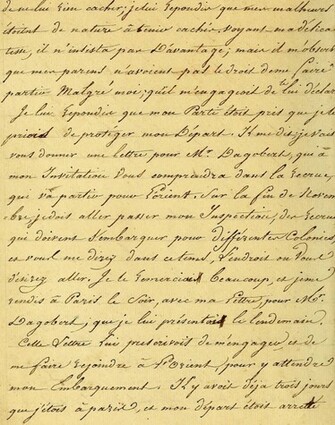 de ne lui rien cacher; je lui repondis que mes malheurs
étoient de nature à tenir caché, voyant ma délica
tesse, il n'insista pas d'avantage; mais il m'observa
que mes parens n'avoient pas le droit de me faire
partir Malgré moi; qu'il m'engageoit de lui déclarer
Je lui repondis que mon Parti étoit pris que je le
priois de proteger mon Départ. Il me dit je vais
vous donner une lettre pour Mr. Dagobert, qui à
mon Invitation vous comprendra dans la Recrue,
qui va partir pour l'orient. Sur la fin de Novem
bre je dois aller passer mon Inspection, des Recrues
qui doivent s'embarquer pour différentes Colonies
et vous me direz dans ce tems, l'endroit ou vous
désirez aller. Je le remerciai beaucoup, et je me
rendis à Paris le Soir, avec ma lettre, pour Mr.
Dagobert, que je lui présentai le lendemain.
Cette Lettre lui prescrivoit de menager, et de
me faire rejoindre à l'Orient, pour y attendre
mon Embarquement. Il y avoit déja trois jours
que j'étois à paris, et mon départ étoit arretté